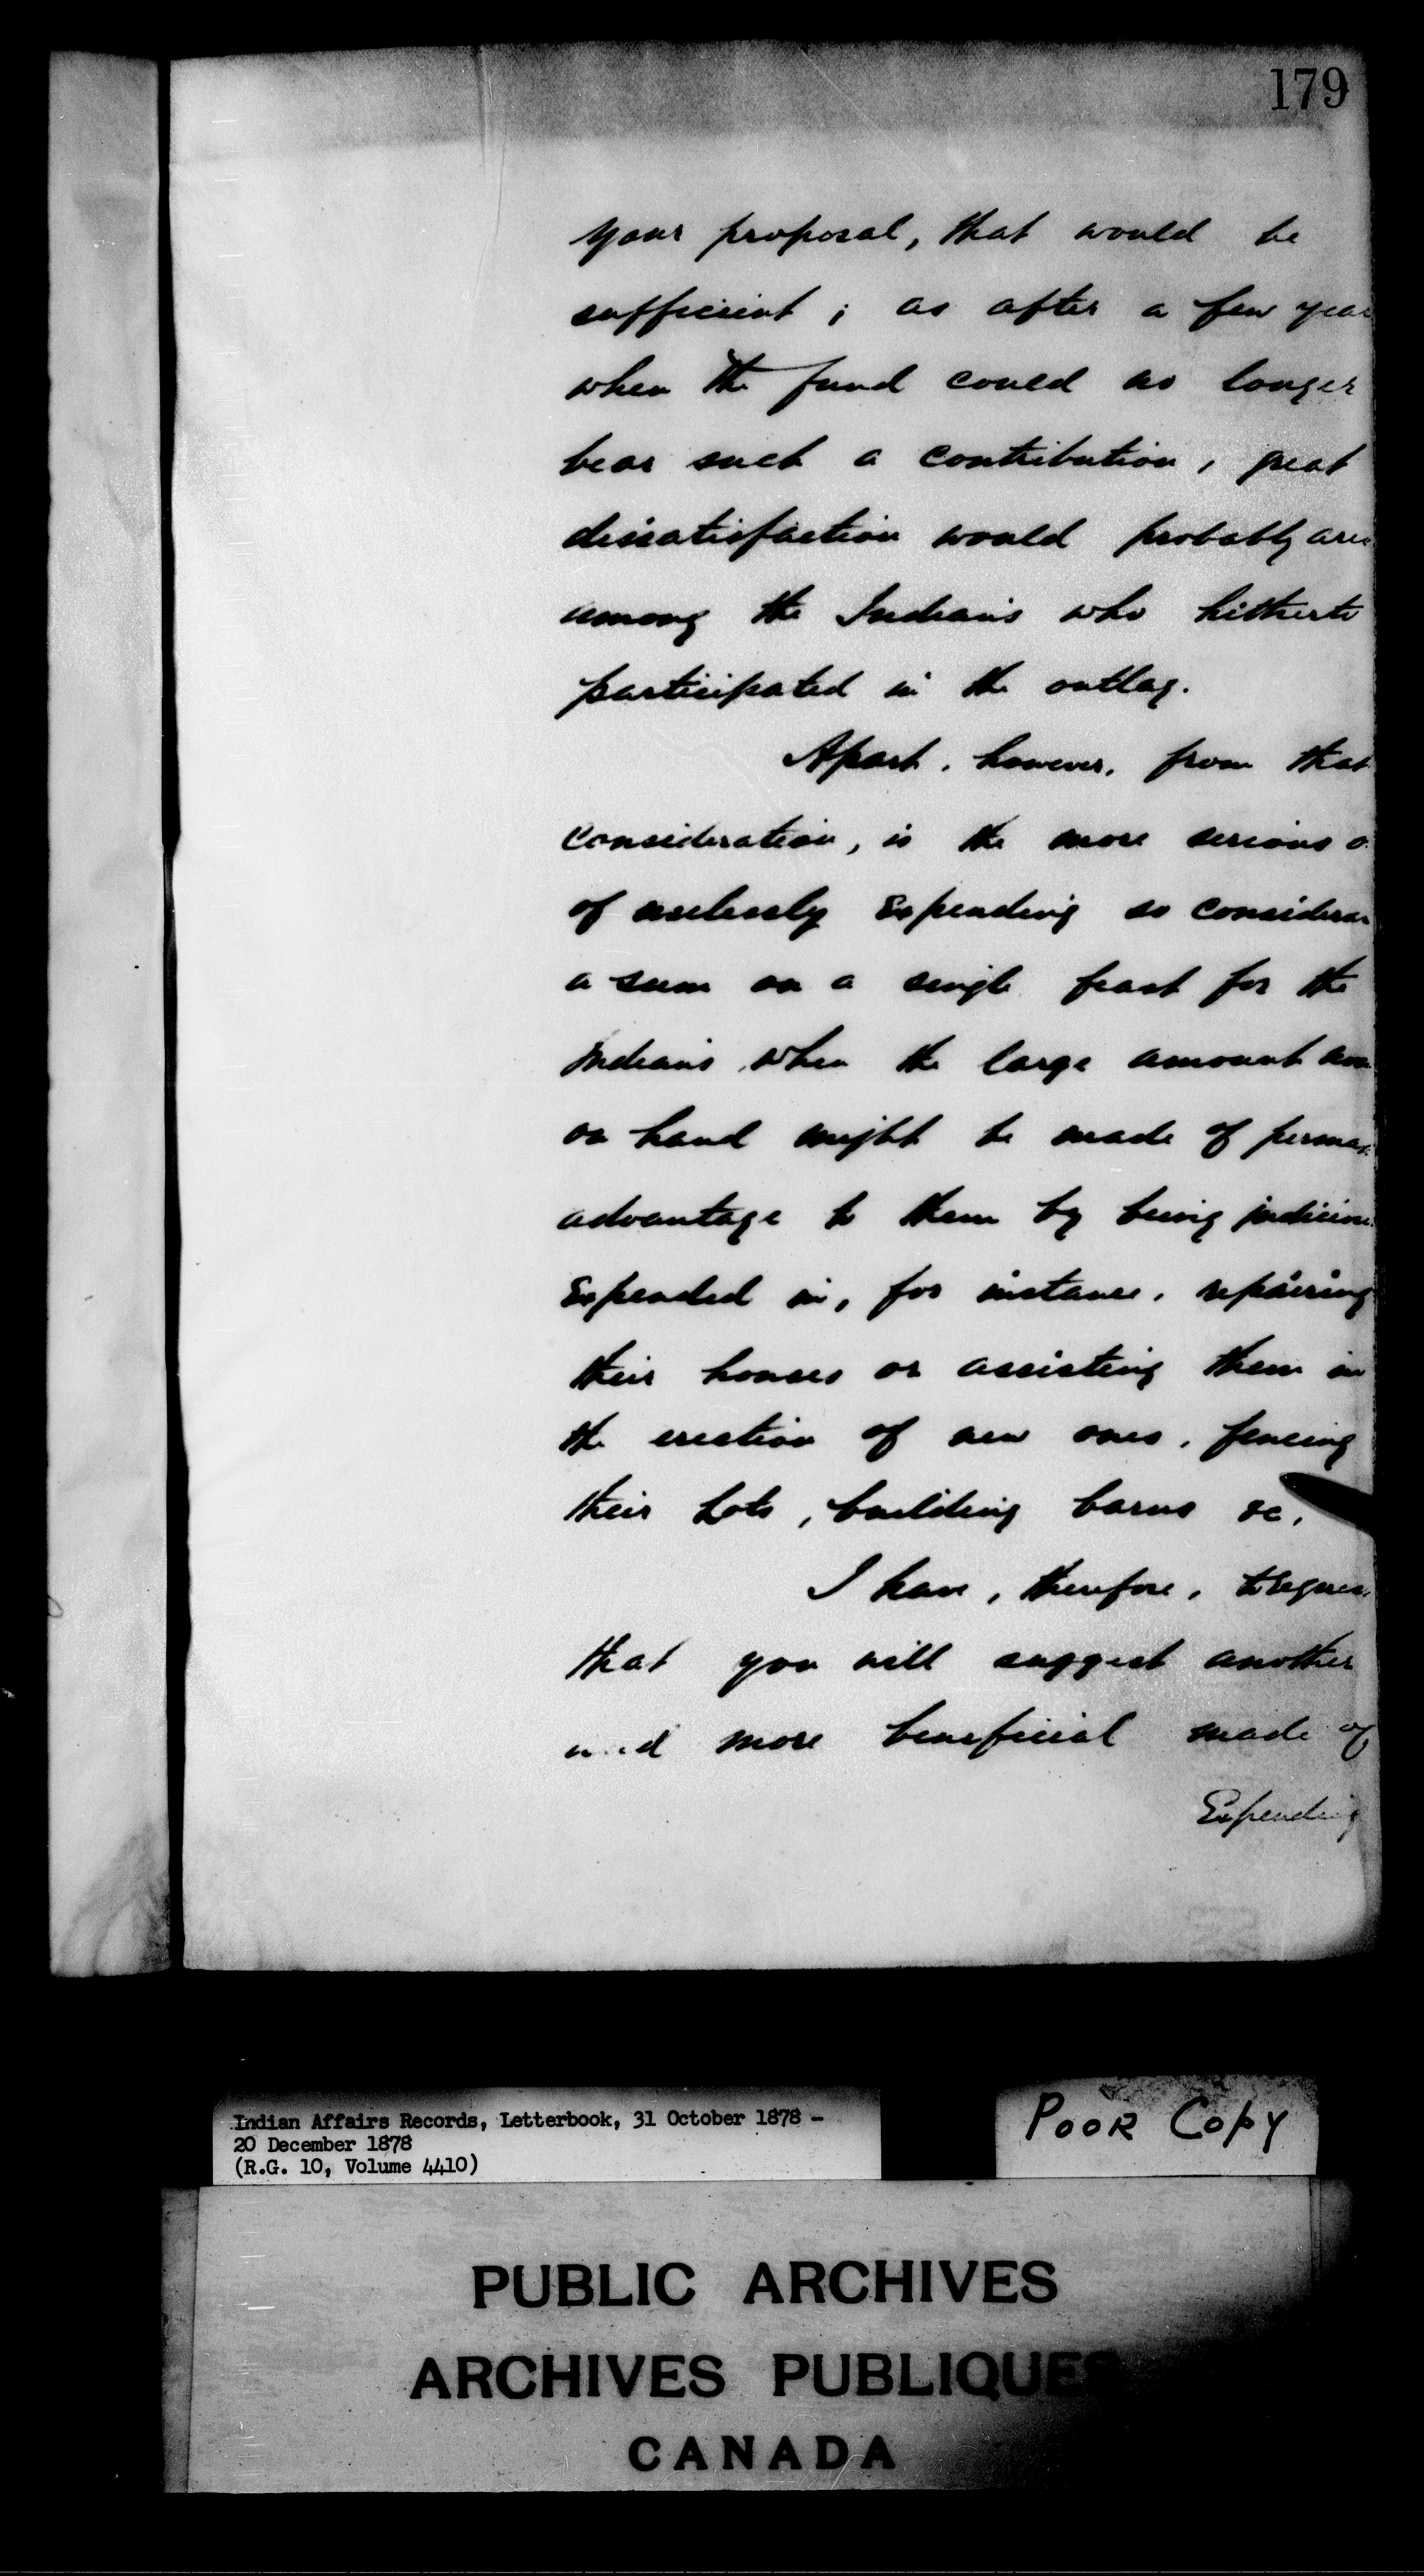 179
your proposal, that would be
sufficient; as after a few year
when the fund could no longer
bear such a contribution, great
dissatisfaction would probably aris
among the Indians who hitherto
participated in the outlay.
Apart, however, from that
consideration, is the more serious o
of uselessly Expending so considera
a sum on a single feast for the
Indians when the large amount
on hand might be made of perman
advantage to them by being judiciou
Expended in, for instance, repairing
their houses or assisting them in
the erection of new ones, fencing
their Lots, building barns &c,
I have, therefore, to reques
that you will suggest another
and more beneficial mode of
Expending
Indian Affairs Records, Letterbook, 31 October 1878 -
20 December 1878
(R.G. 10, Volume 4410)
POOR COPY
PUBLIC ARCHIVES
ARCHIVES PUBLIQUES
CANADA